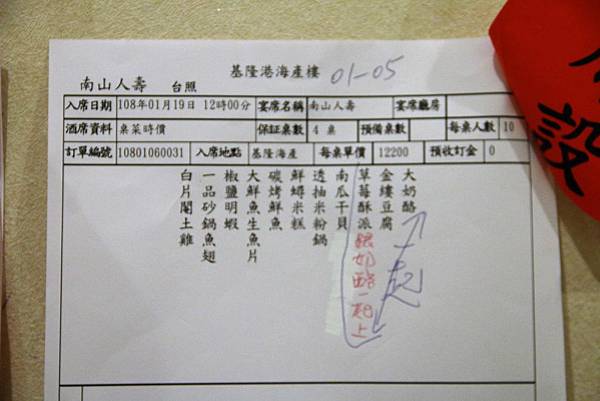 基隆港海產樓 01-05
南山人壽 台照
入席日期 108年01月19日 12時00分 宴席名稱 南山人壽 宴席廳房
酒席資料 桌菜時價 保証桌數 4 桌 預備桌數 每桌人數 10
訂單編號 10801060031 入席地點 基隆海產 每桌單價 12200 預收訂金 0
大奶酪
一起
金縷豆腐
草莓酥派 跟奶酪一起上
南瓜干貝
透抽米粉鍋
鮮蟳米糕
碳烤鮮魚
大鮮魚生魚片
椒鹽明蝦
一品砂鍋魚翅
白片閹土雞
設